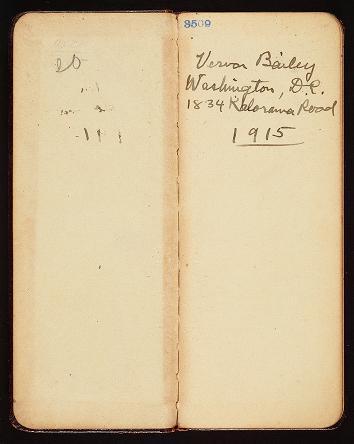 20
3509
Vernon Bailey
Washington, D.C.
1834 Kalorama Road
1915